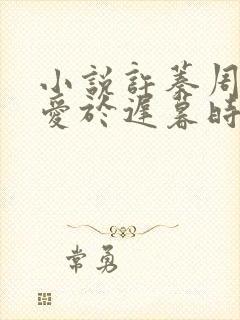 小說許蓁周
愛於遲暮時
常勇